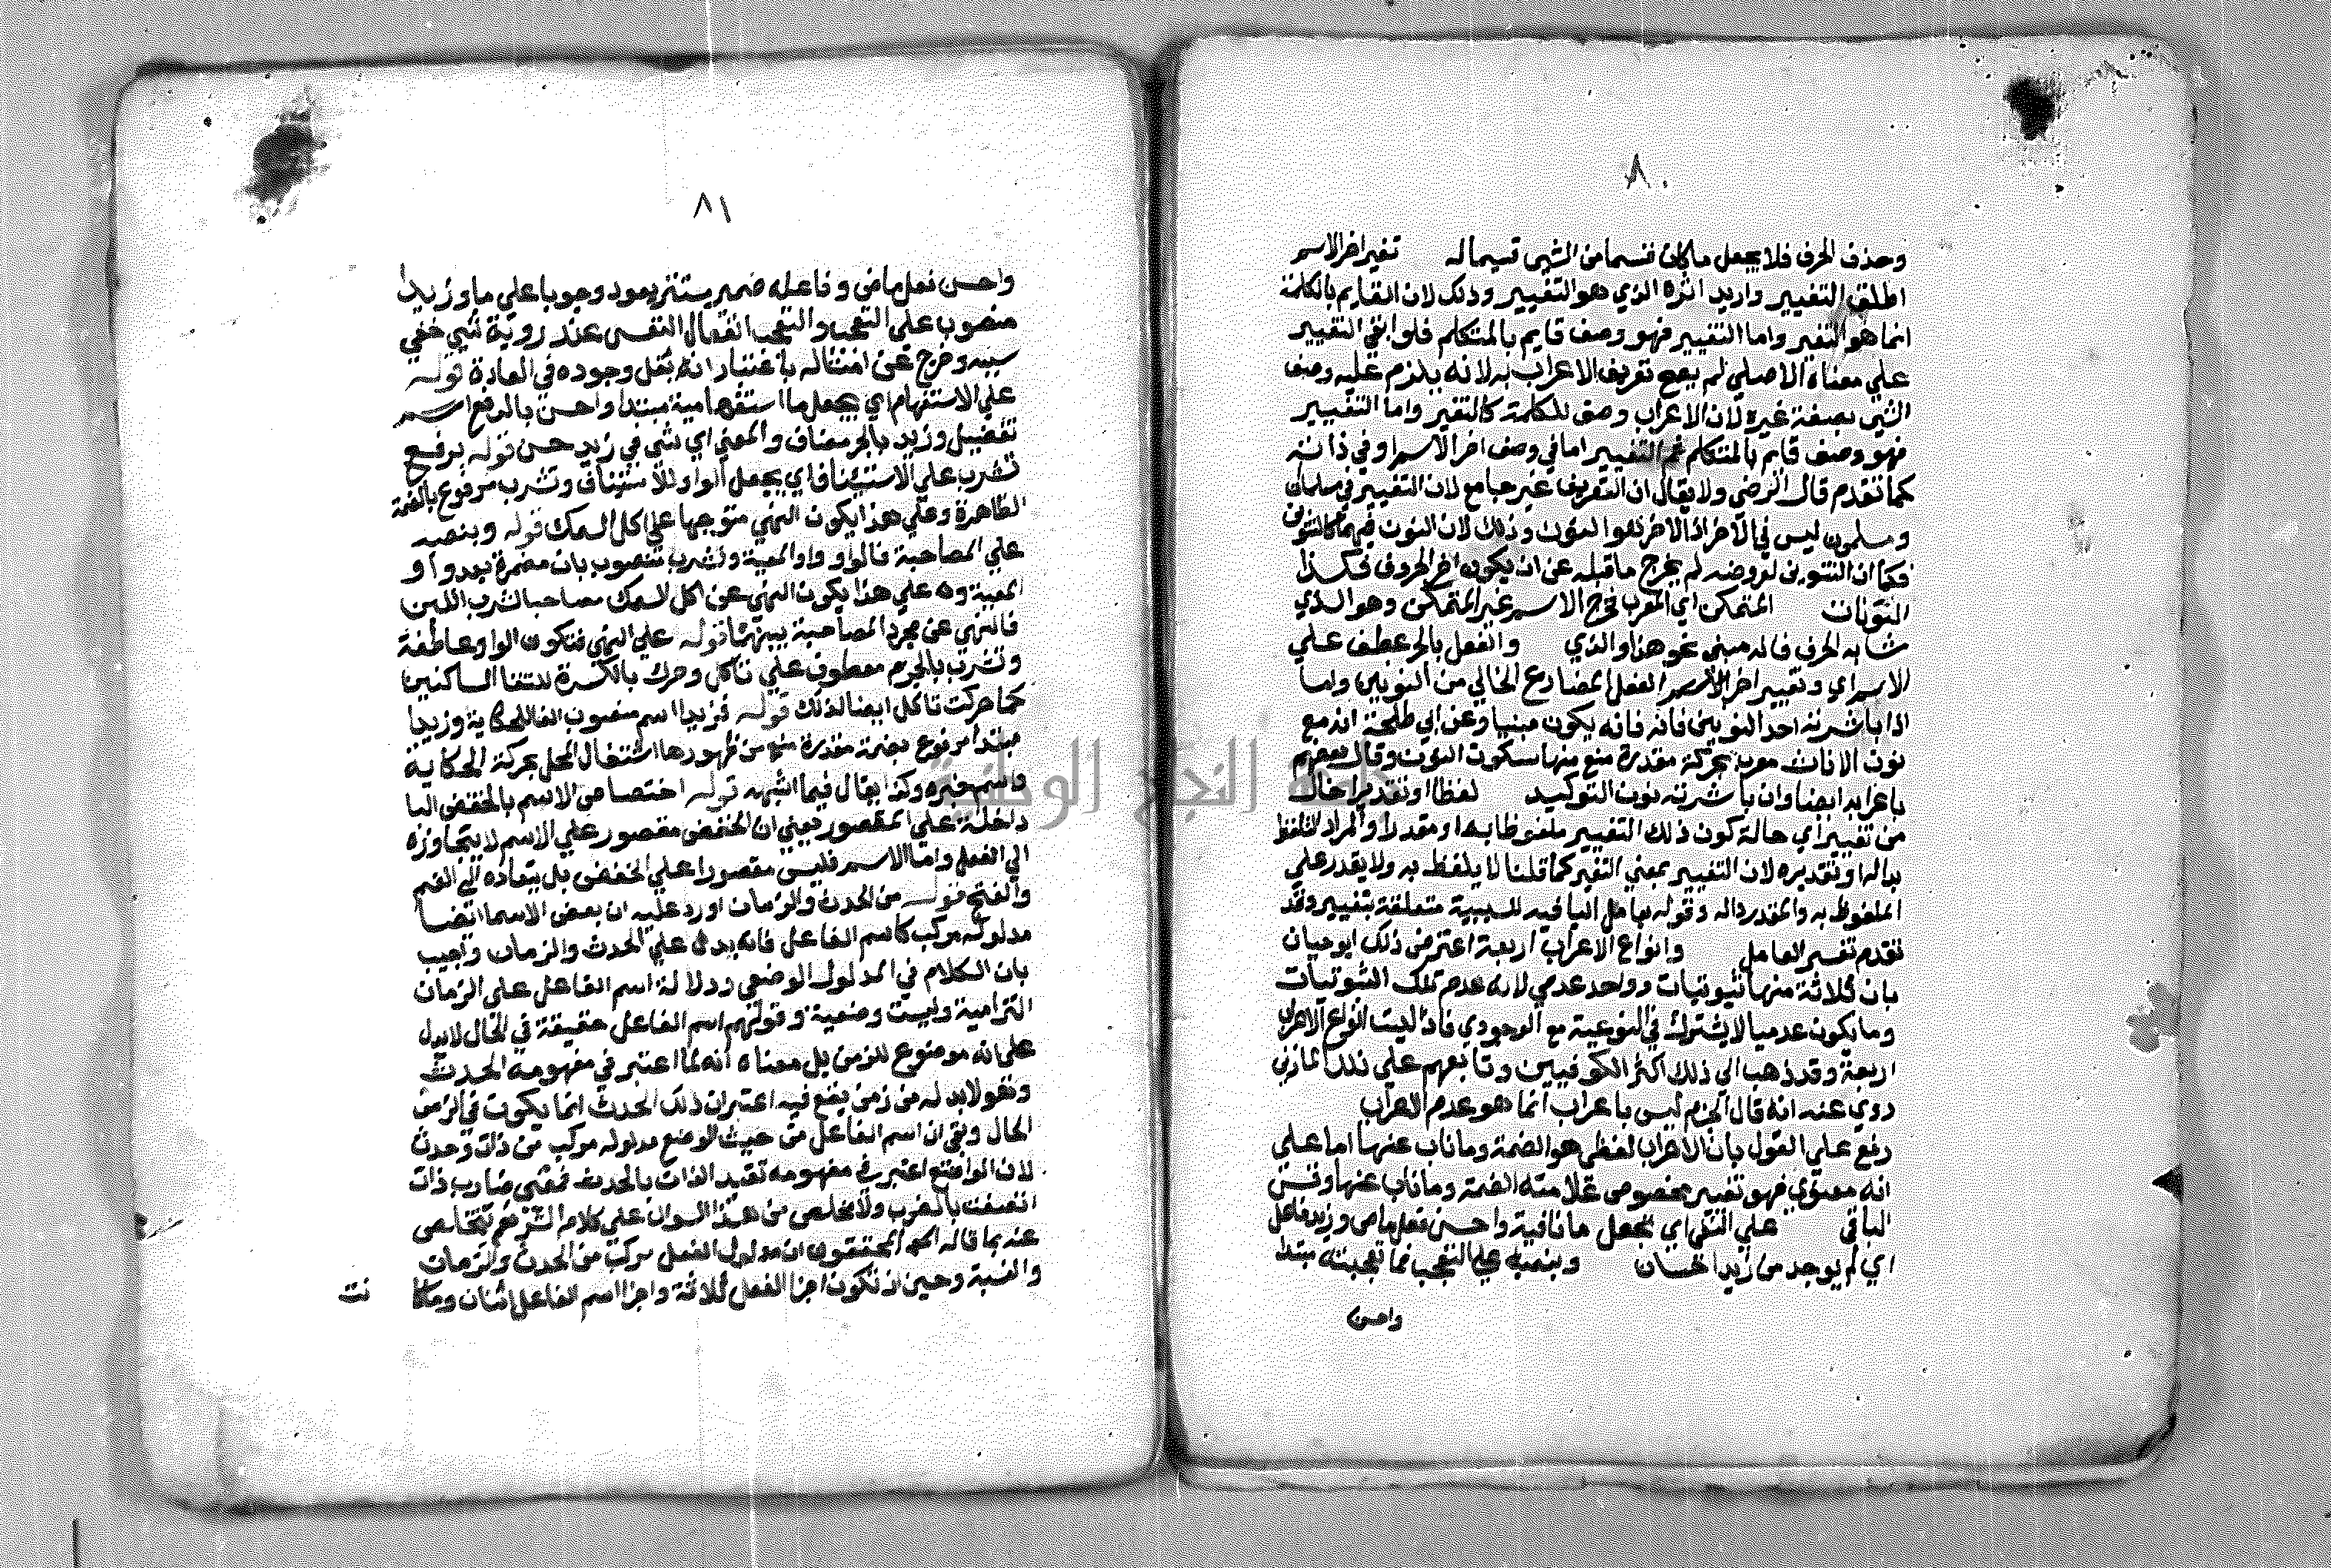 ٨٠
وحذف الحرف فلا يجعل ما كان قسما من الشي قسيما له تغيير اخر الاسم
اطلق التغيير واريد اثره الذي هو التغيير وذلك لان القايم بالكلمة
انما هو التغير واما التغيير فهو وصف قايم بالمتكلم فلو ابقي التغيير
علي معناه الاصلي لم يصح تعريف الاعراب به لانه يلزم عليه وصف
الشي بصفة غيره لان الاعراب وصف للكلمة كالتغير واما التغيير
فهو وصف قايم بالمتكلم ثم التغيير اما في وصف اخر الاسم او في ذاته
كما تقدم قال الرضي ولا يقال ان التعريف غير جامع لان التغيير في مسلمان
ومسلمون ليس في الاخر اذ الاخر هو النون وذلك لان النون فيهما كالتنوين
فكما ان التنوين لعروضه لم يخرج ما قبله عن ان يكون اخر الحروف فكذا
النونات المتمكن اي المعرب فخرج الاسم غير المتمكن وهو الذي
شابه الحرف فانه مبني نحو هذا والذي والفعل بالجر عطف علي
الاسم اي وتغيير اخر الفعل المضارع الخالي من النونين واما
اذا باشرته احد النونين فانه فانه يكون مبنيا وعن ابي طلحة انه مع
نون الاناث معرب بحركة مقدرة منع منها سكون النون وقال بعضهم
باعرابه ايضا وان باشرته نون التوكيد لفظا او تقديرا حال
من تغيير اي حالة كون ذلك التغيير ملفوظا به او مقدرا والمراد التلفظ
بداله او تقديره لان التغيير بمعني التغير كما قلنا لا يلفظ به ولا يقدر علي
الملفوظ به والمقدر داله وقوله بعامل البا فيه للسببية متعلقة بتغيير وقد
تقدم تفسير العامل وانواع الاعراب اربعة اعترض ذلك ابو حيان
بان ثلاثة منها ثبوتيات وواحد عدمي لانه عدم تلك الثبوتيات
وما يكون عدميا لا يشترك في النوعية مع الوجودي فاذا ليست انواع الاعراب
اربعة وقد ذهب الي ذلك اكثر الكوفيين وتابعهم علي ذلك المازني
روي عنه انه قال الجزم ليس باعراب انما هو عدم الاعراب
رفع علي القول بان الاعراب لفظي هو الضمة وما ناب عنها اما علي
انه معنوي فهو تغيير مخصوص علامته الضمة وما ناب عنها وقس
الباقي علي النفي اي بجعل ما نافية واحسن فعل ماض وزيد فاعل
اي لم يوجد من زيد احسان وبنصبه علي التعجب فما تعجبية مبتدا
واحسن
٨١
واحسن فعل ماض وفاعله ضمير يستتر يعود وجوبا علي ما وزيدا
منصوب علي التعجب والتعجب انفعال النفس عند روية شي خفي
سببه وخرج عن امثاله باعتبار انه يقل وجوده في العادة قوله
علي الاستفهام اي بجعل ما استفهامية مبتدا واحسن بالرفع اسم
تفضيل وزيد بالجر مضاف والمعني اي شي في زيد حسن قوله برفع
تشرب علي الاستيناف اي بجعل الواو للاستيناف وتشرب مرفوع بالضمة
الظاهرة وعلي هذا يكون النهي متوجها علي كل السمك قوله وبنصبه
علي المصاحبة فالواو واو المعية وتشرب منصوب بان مضمرة بعد واو
المعية وعلي هذا يكون النهي عن اكل السمك مصاحبا لشرب اللبن
فالنهي عن مجرد المصاحبة بينهما قوله علي النهي فتكون الواو عاطفة
وتشرب بالجزم معطوف علي تاكل وحرك بالكسرة للتقا الساكنين
كما حركت تاكل ايضا لذلك قوله فزيدا اسم منصوب الفا للحكاية وزيدا
مبتدا مرفوع بضمة مقدرة منع من ظهورها اشتغال المحل بحركة الحكاية
واسم خبره وكذا يقال فيما اشبهه قوله اختصاص الاسم بالخفض البا
داخلة علي المقصور يعني ان الخفض مقصور علي الاسم لا يتجاوزه
الي الفعل واما الاسم فليس مقصورا علي الخفض بل يتعداه الي الضم
والفتح قوله من الحدث والزمان اورد عليه ان بعض الاسما ايضا
مدلوله مركب كاسم الفاعل فانه يدل علي الحدث والزمان واجيب
بان الكلام في المدلول الوضعي ودلالة اسم الفاعل علي الزمان
التزامية وليست وضعية وقولهم اسم الفاعل حقيقة في الحال لا يدل
علي انه موضوع للزمن بل معناه انه لما اعتبر في مفهومه الحدث
وهو لا بد له من زمن يقع فيه اعتبر ان ذلك الحدث انما يكون في الزمن
الحال وبقي ان اسم الفاعل من حيث الوضع مدلوله مركب من ذات وحدث
لان الواضع اعتبر في مفهومه تقيد الذات بالحدث فمعني ضارب ذات
اتصفت بالضرب ولا مخلص من هذا السوال علي كلام الشرح
عنه بما قاله المحققون ان مدلول الفعل مركب من الحدث والزمان
والنسبة وحين اذ تكون اجزا الفعل ثلاثة واجزا اسم الفاعل اثنان وما كا
نت
جامعة النجاح الوطنية